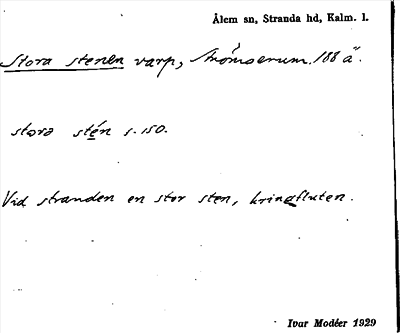 Ålem sn, Stranda hd, Kalm. l.
Stora stenen varp, Strömserum. 188 ä.
stora stén s. 150.
Vid stranden en stor sten, kringfluten.
Ivar Modéer 1929